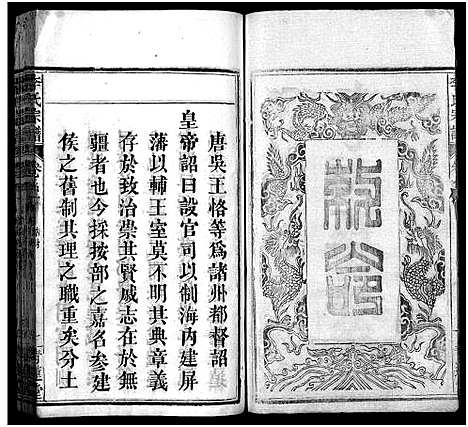 敕命
李氏宗譜
唐吳王恪等爲諸州都督詔
皇帝詔曰設官司以制海內建屏
藩以輔王室莫不明其典章義
存於致治崇其賢戚志在於無
疆者也今採按部之嘉名叅建
侯之舊制其理之職重矣分土
李氏宗譜